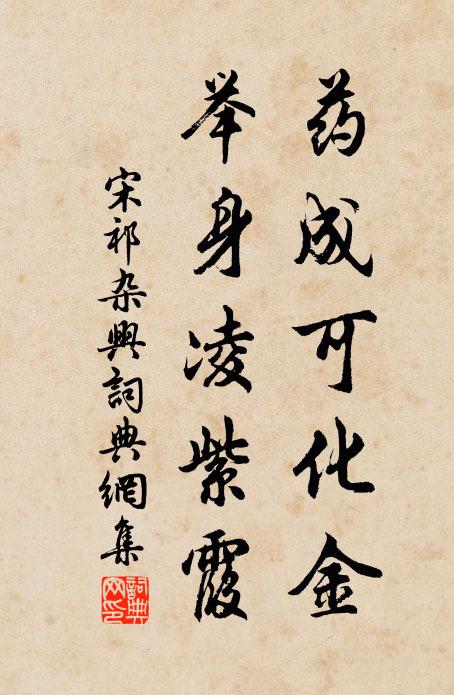 药成可化金
举身凌紫霞
宋祁杂興詞典網集
詞典网印